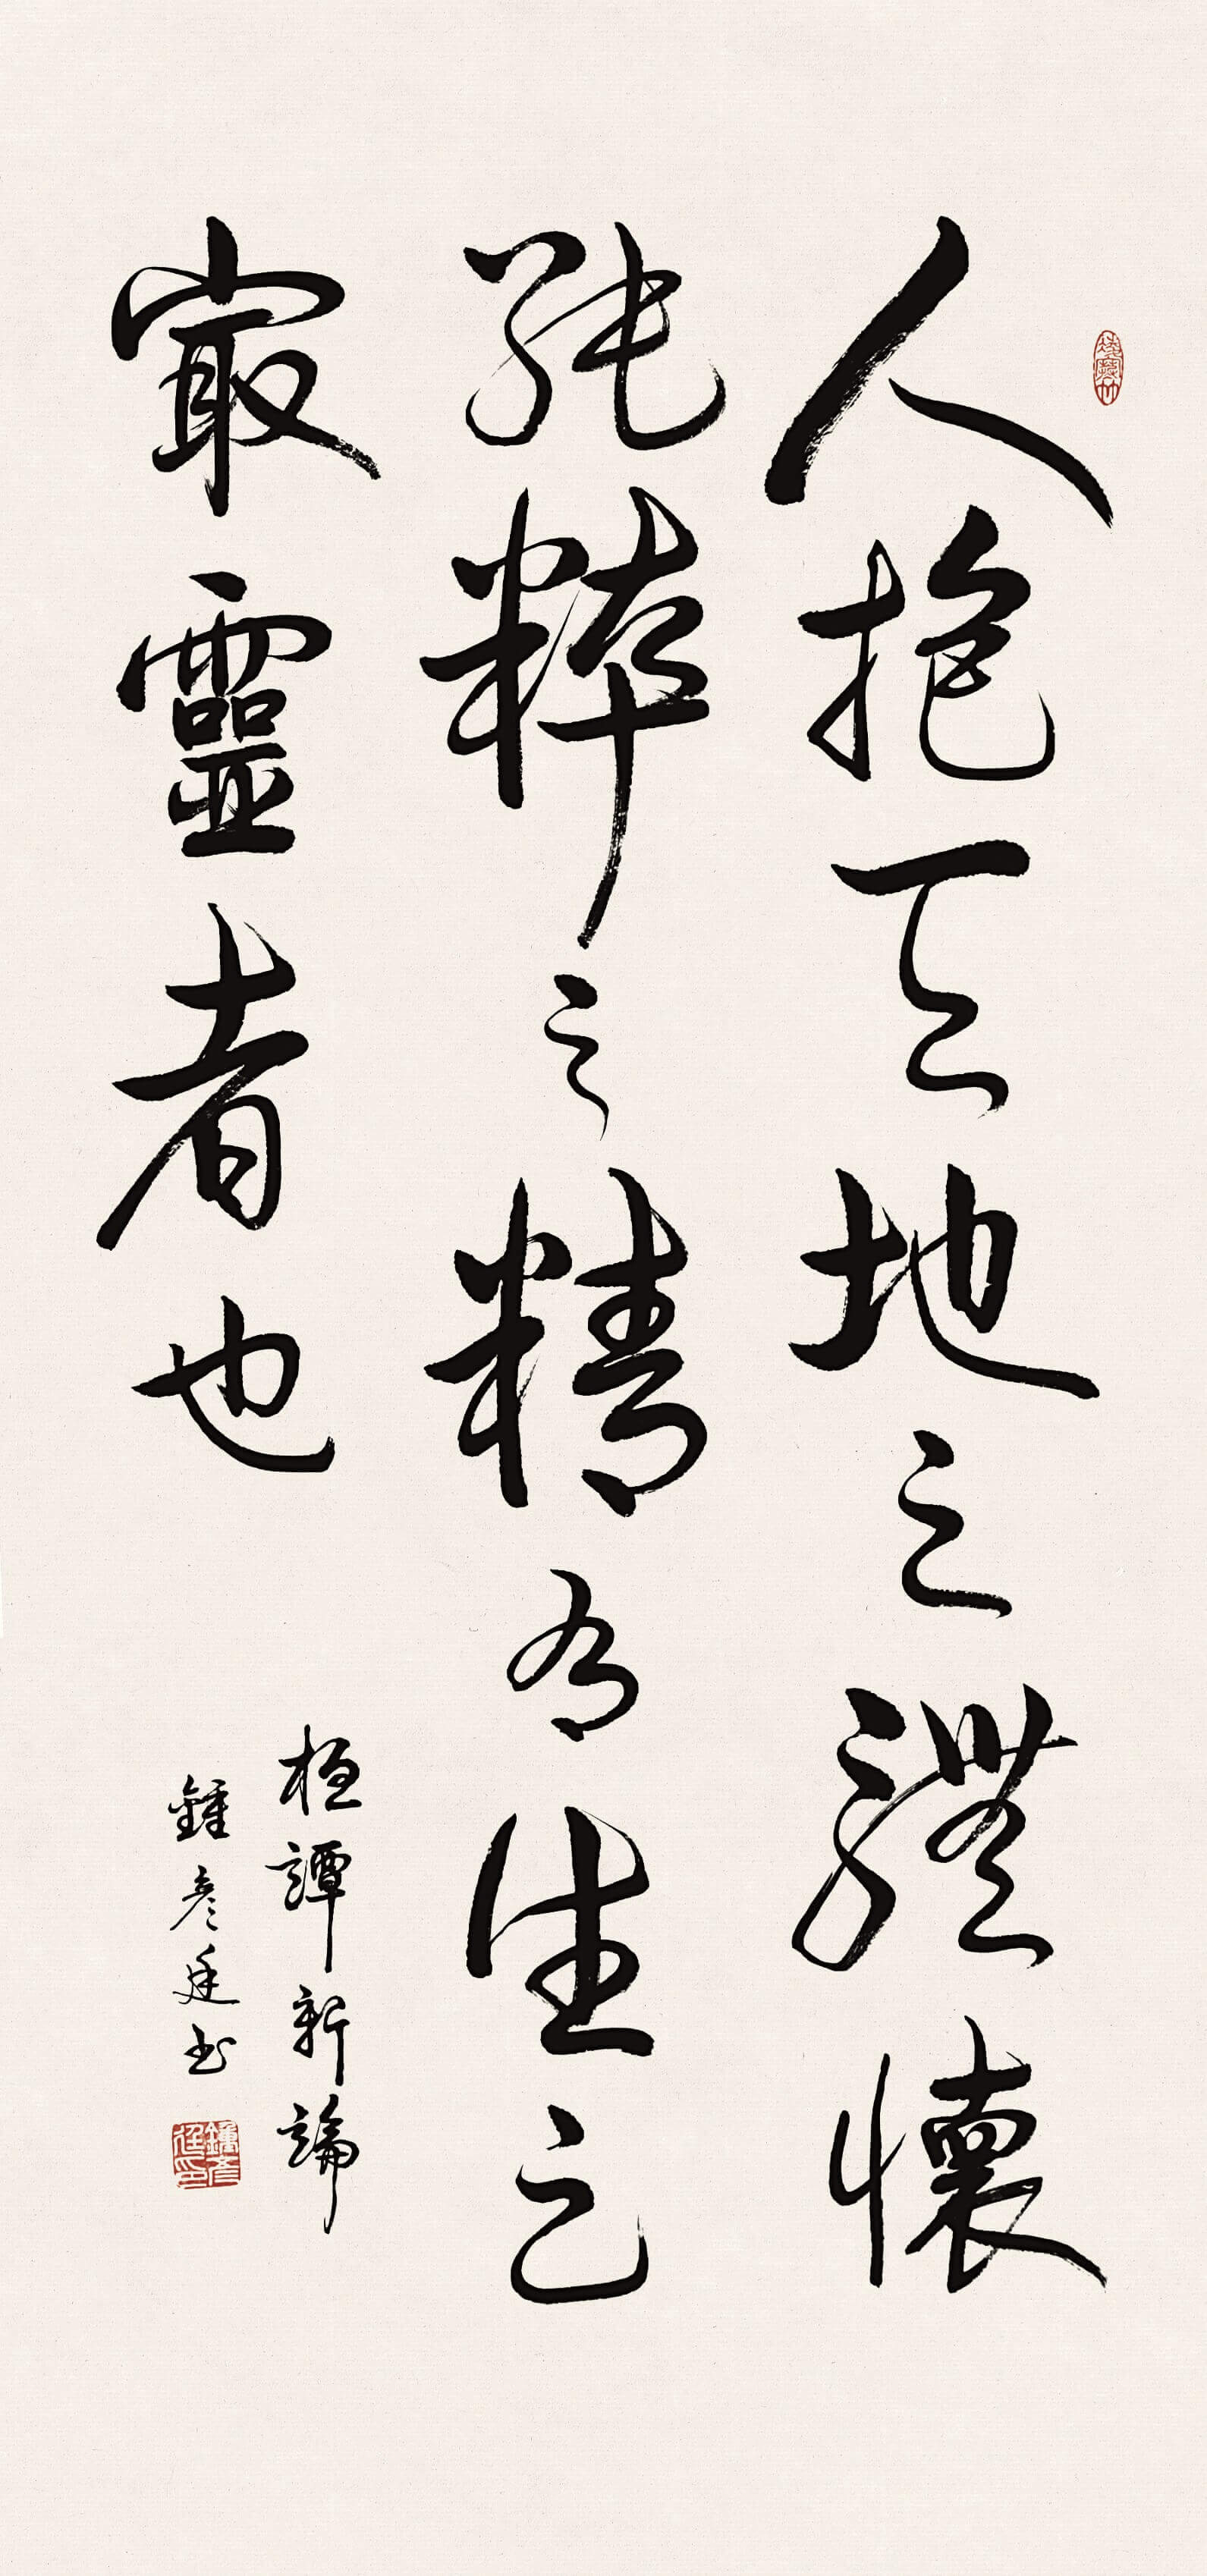 人抱天地之體懷
純粹之精有生之
最靈者也
桓譚新論
鍾彥廷書
鍾彥廷印